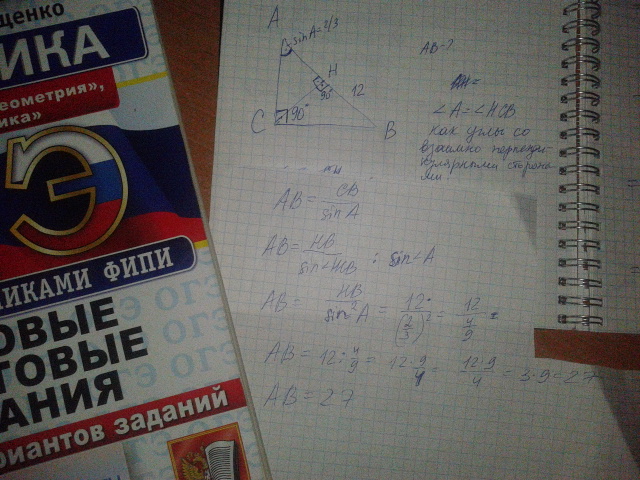 щенко
ИКА
«Геометрия»,
ика»
Э
ИКАМИ ФИПИ
ОВЫЕ
ТОВЫЕ
АНИЯ
ариантов заданий
A
sinA=2/3
H
90°
12
C
90°
B
AB-?
∠A=∠HCB
как углы со
взаимно перпенди-
кулярными сторона-
ми.
AB = CB/sin A
AB = HB/sin∠HCB : sin∠A
AB = HB/sin²A = 12/(2/3)² = 12/(4/9) =
AB = 12 : 4/9 = 12·9/4 = 12·9/4 = 3·9 = 27
AB = 27